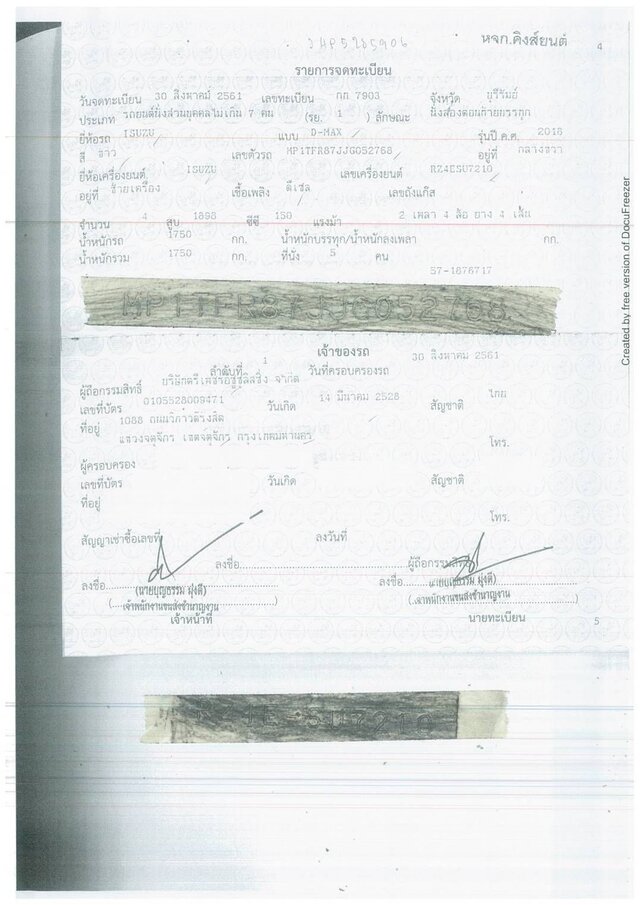 JHP5285906
หจก.คิงส์ยนต์
4
รายการจดทะเบียน
วันจดทะเบียน 30 สิงหาคม 2561 เลขทะเบียน กก 7903 จังหวัด บุรีรัมย์
ประเภท รถยนต์นั่งส่วนบุคคลไม่เกิน 7 คน (รย. 1 ) ลักษณะ นั่งสองตอนท้ายบรรทุก
ยี่ห้อรถ ISUZU แบบ D-MAX รุ่นปี ค.ศ. 2018
สี ขาว เลขตัวรถ MP1TFR87JJG052768 อยู่ที่ กลางขวา
ยี่ห้อเครื่องยนต์ ISUZU เลขเครื่องยนต์ RZ4ESU7210
อยู่ที่ ซ้ายเครื่อง เชื้อเพลิง ดีเซล เลขถังแก๊ส
จำนวน 4 สูบ 1898 ซีซี 150 แรงม้า 2 เพลา 4 ล้อ ยาง 4 เส้น
น้ำหนักรถ 1750 กก. น้ำหนักบรรทุก/น้ำหนักลงเพลา กก.
น้ำหนักรวม 1750 กก. ที่นั่ง 5 คน
57-1876717
MP1TFR87JJG052768
เจ้าของรถ
ลำดับที่ 1 วันที่ครอบครองรถ 30 สิงหาคม 2561
ผู้ถือกรรมสิทธิ์ บริษัทตรีเพชรอีซูซุลิสซิ่ง จำกัด
เลขที่บัตร 0105528009471 วันเกิด 14 มีนาคม 2528 สัญชาติ ไทย
ที่อยู่ 1088 ถนนวิภาวดีรังสิต
แขวงจตุจักร เขตจตุจักร กรุงเทพมหานคร โทร.
ผู้ครอบครอง
เลขที่บัตร วันเกิด สัญชาติ
ที่อยู่
โทร.
สัญญาเช่าซื้อเลขที่ ลงวันที่
ลงชื่อ ผู้ถือกรรมสิทธิ์
ลงชื่อ (นายบุญธรรม มุ่งดี) ลงชื่อ นายบุญธรรม มุ่งดี)
(เจ้าพนักงานขนส่งชำนาญงาน) (เจ้าพนักงานขนส่งชำนาญงาน)
เจ้าหน้าที่ นายทะเบียน
5
Created by free version of DocuFreezer